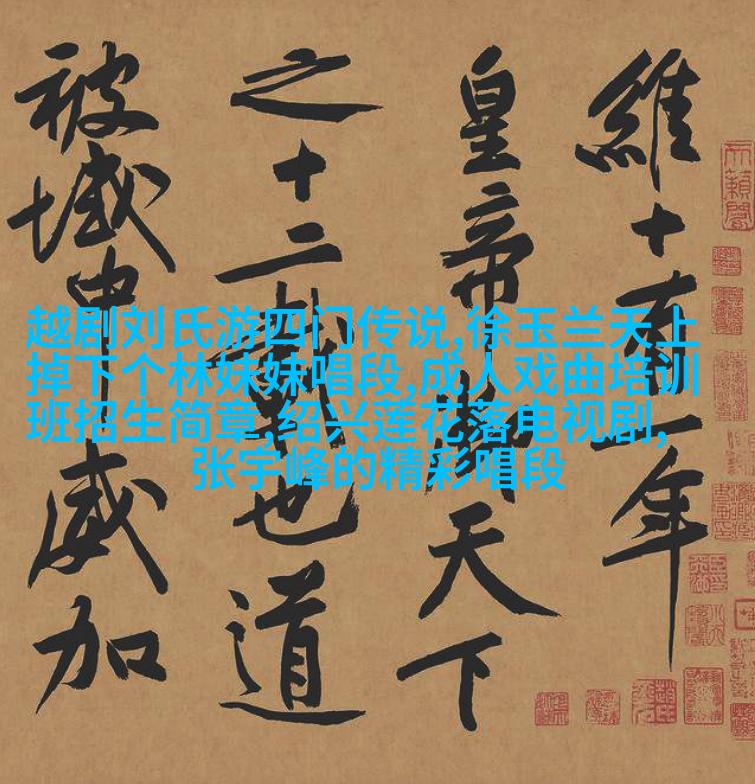 越剧刘氏游四门传说,徐玉兰天上
掉下个林妹妹唱段,成人戏曲培训
班招生简章,绍兴莲花落电视剧,
张宇峰的精彩唱段
維十有一年
皇帝御天下
之十二載也道
被域中威加